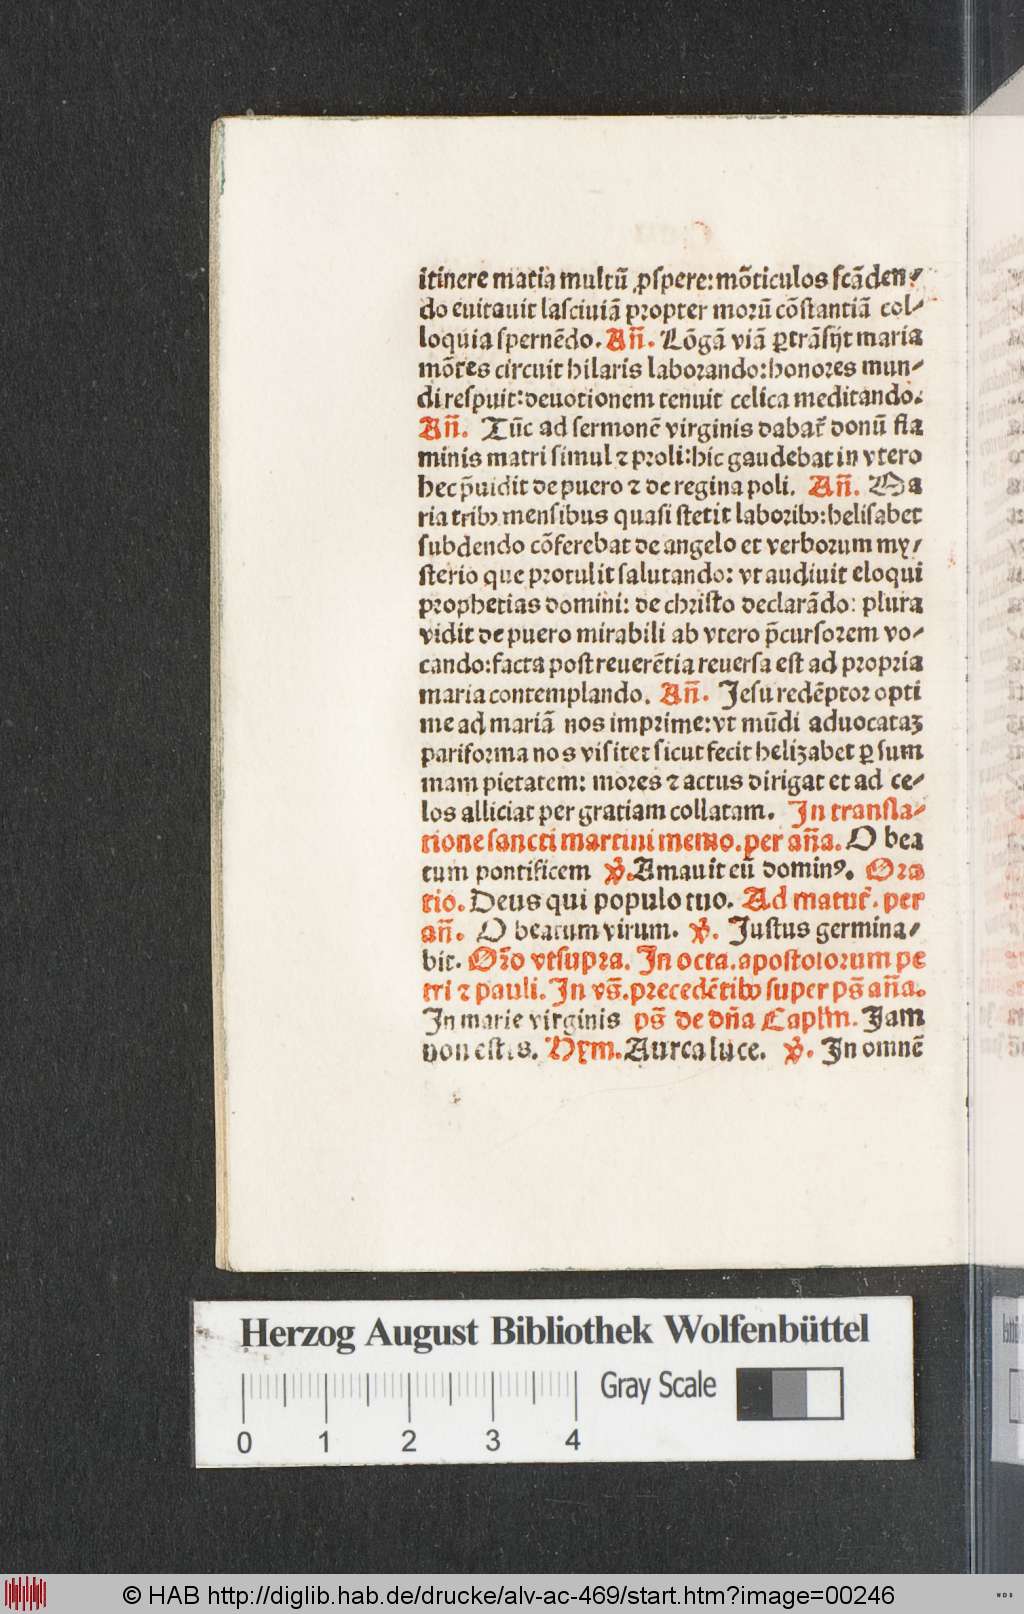 itinere maria multū ꝓspere: mōticulos scāden⸗
do euitauit lasciuiā propter morū cōstantiā col⸗
loquia spernēdo. Añ. Lōgā viā ꝑtrāsijt maria
mōtes circuit hilaris laborando: honores mun⸗
di respuit: deuotionem tenuit celica meditando.
Añ. Tūc ad sermonē virginis dabat᷑ donū fla
minis matri simul ⁊ proli: hic gaudebat in vtero
hec p̄uidit de puero ⁊ de regina poli. Añ. Ma
ria tribꝫ mensibus quasi stetit laboribꝫ: helisabet
subdendo cōferebat de angelo et verborum my⸗
sterio que protulit salutando: vt audiuit eloqui
prophetias domini: de christo declarādo: plura
vidit de puero mirabili ab vtero p̄cursorem vo⸗
cando: facta post reuerētia reuersa est ad propria
maria contemplando. Añ. Jesu redēptor opti
me ad mariā nos imprime: vt mūdi aduocataꝫ
pariforma nos visitet sicut fecit helizabet ꝑ sum
mam pietatem: mores ⁊ actus dirigat et ad ce⸗
los alliciat per gratiam collatam. In transla⸗
tione sancti martini memo. per añā. O bea
tum pontificem ꝟ. Amauit eū dominꝰ. Ora
tio. Deus qui populo tuo. Ad matut᷑. per
añ. O beatum virum. ꝟ. Justus germina⸗
bit. Or̄o vtsupra. In octa. apostolorum pe
tri ⁊ pauli. In vs̄. precedētibꝫ super ps̄ añā.
In marie virginis ps̄ de dn̄a Caplm̄. Jam
non estis. Hym. Aurea luce. ꝟ. In omnē
Herzog August Bibliothek Wolfenbüttel
Gray Scale
0 1 2 3 4
© HAB http://diglib.hab.de/drucke/alv-ac-469/start.htm?image=00246